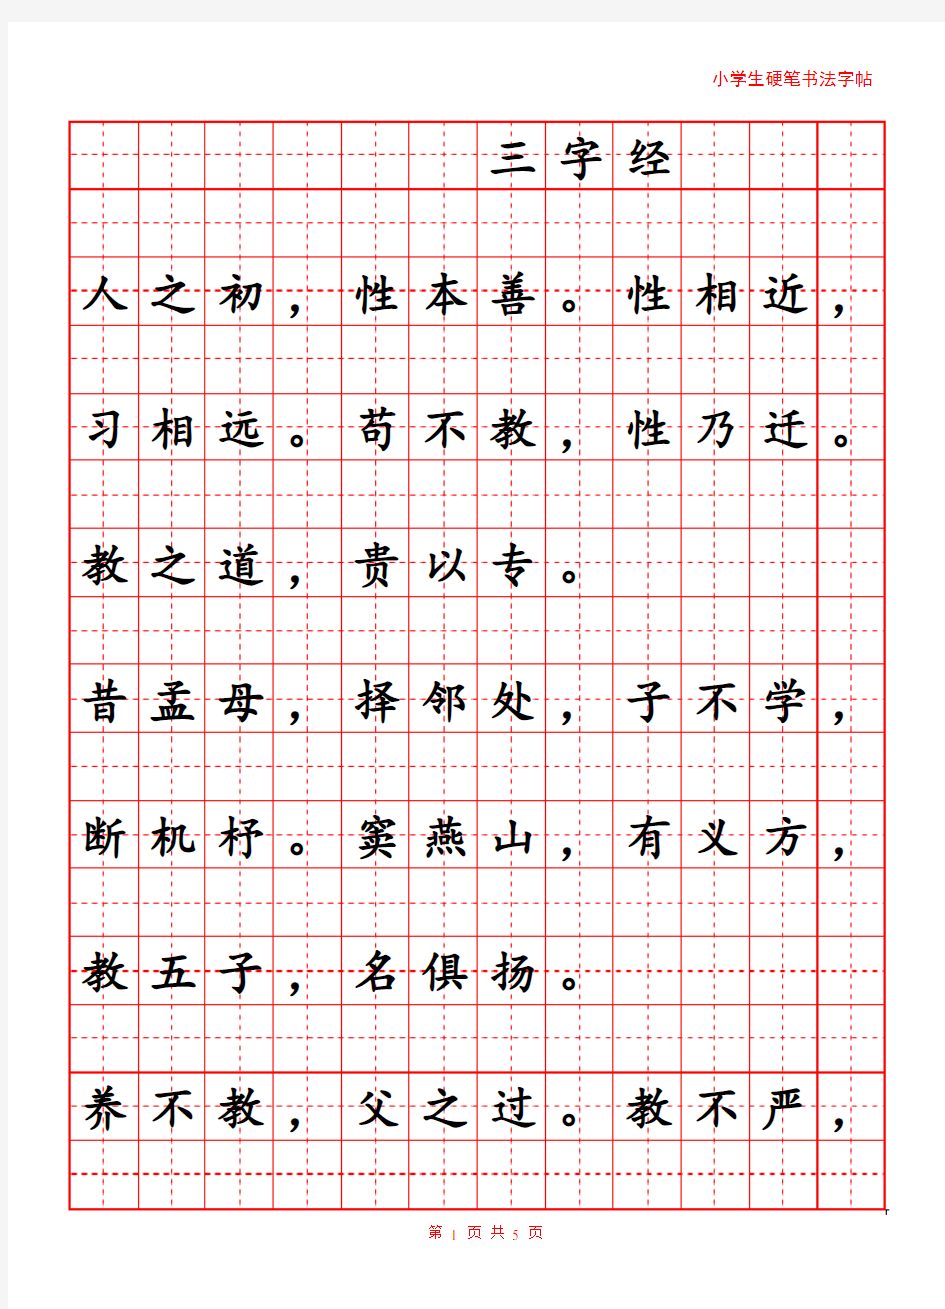 小学生硬笔书法字帖
三字经
人之初，性本善。性相近，
习相远。苟不教，性乃迁。
教之道，贵以专。
昔孟母，择邻处，子不学，
断机杼。窦燕山，有义方，
教五子，名俱扬。
养不教，父之过。教不严，
第 1 页 共 5 页